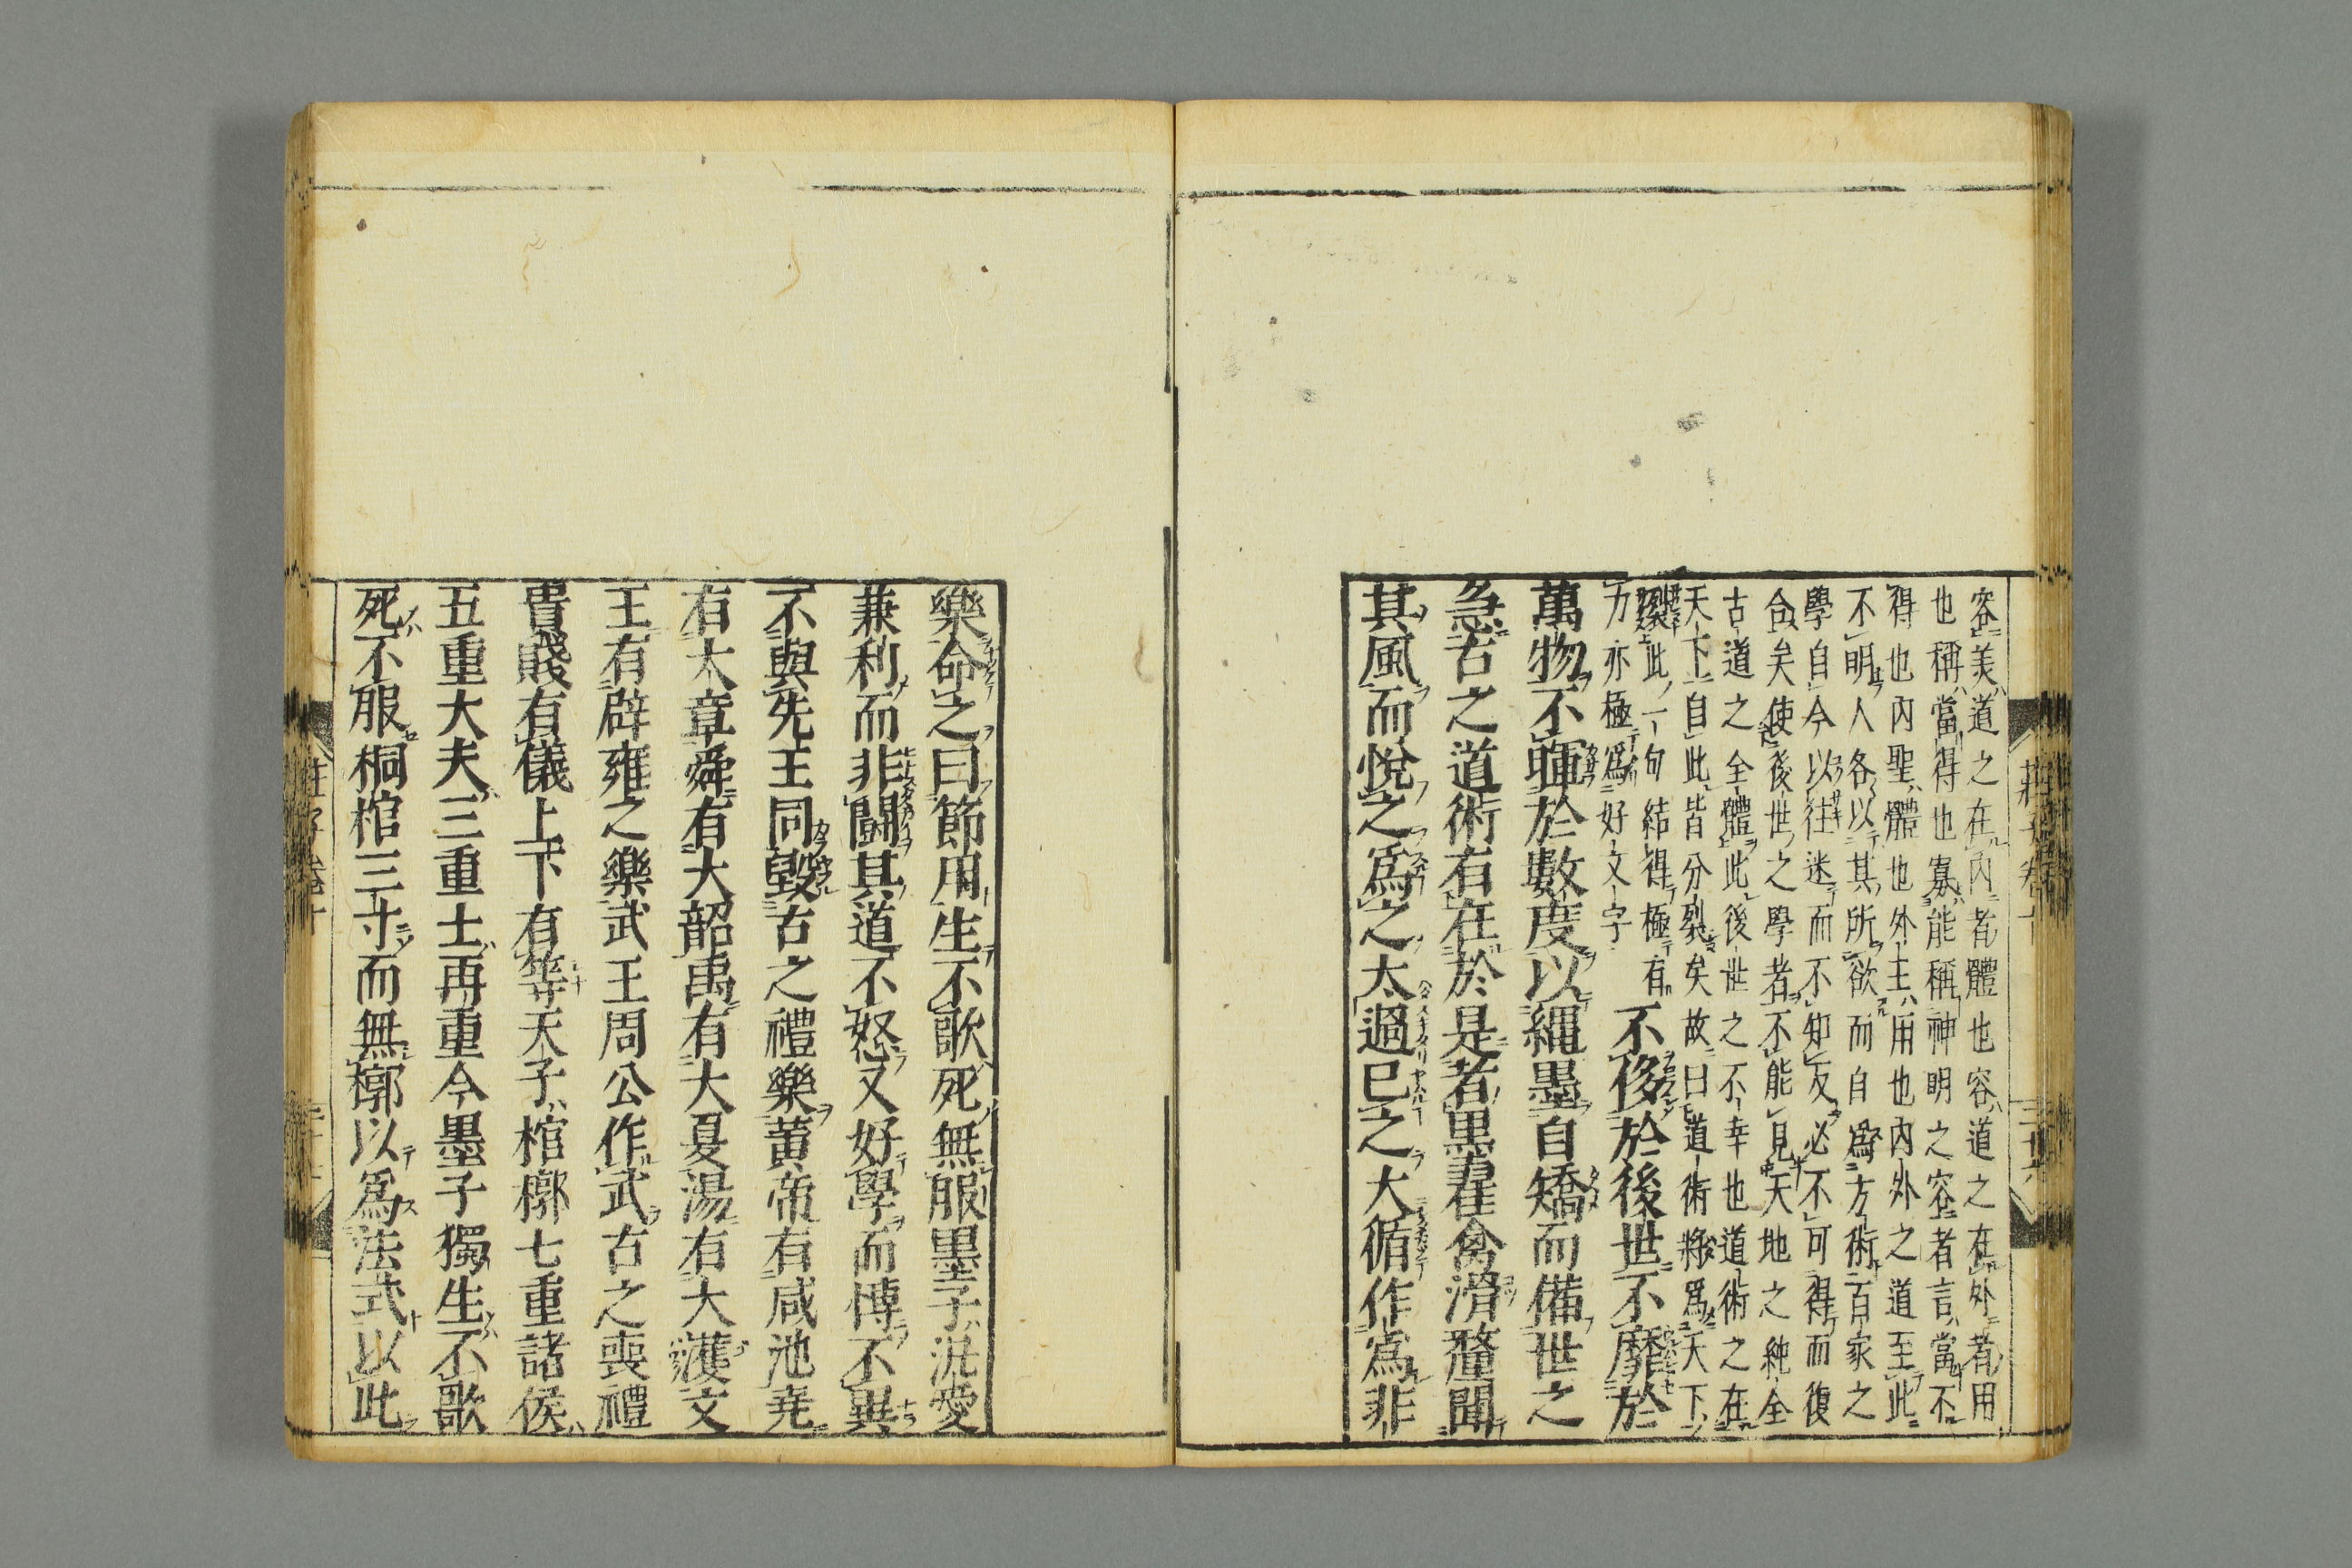 容美道之在内者體也容道之在外者用
也稱當得也寡能稱神明之容者言當不
得也内聖體也外王用也内外之道至此
不明人各以其所欲而自爲方術百家之
學自今以往迷而不知反必不可得而復
合矣使後世之學者不能見天地之純全
古道之全體此後世之不幸也道術之在
天下自此皆分裂矣故曰道術將爲天下
裂此一句結得極有
力亦極爲好文字
不侈於後世不靡於
萬物不暉於數度以繩墨自矯而備世之
急古之道術有在於是者墨翟禽滑釐聞
其風而悅之爲之太過已之大循作爲非
樂命之曰節用生不歌死無服墨子汎愛
兼利而非鬪其道不怒又好學而博不異
不與先王同毀古之禮樂黄帝有咸池堯
有大章舜有大韶禹有大夏湯有大濩文
王有辟雍之樂武王周公作武古之喪禮
貴賤有儀上下有等天子棺槨七重諸侯
五重大夫三重士再重今墨子獨生不歌
死不服桐棺三寸而無槨以爲法式以此